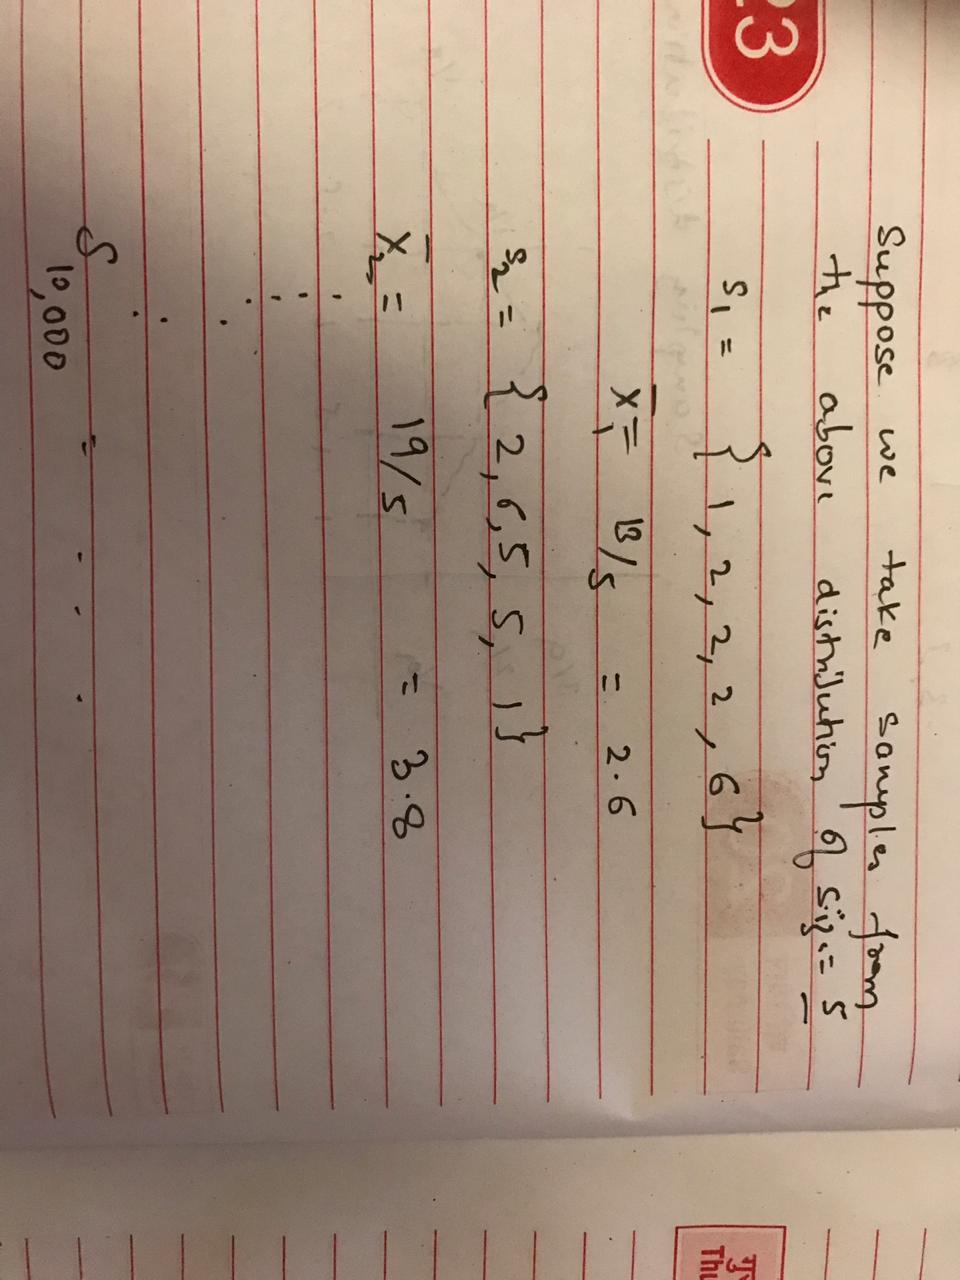 23
Suppose we take samples from
the above distribution of size = 5
s₁ = { 1, 2, 2, 2, 6 }
x̄₁ = 13/5 = 2.6
s₂ = { 2, 6, 5, 5, 1 }
x̄₂ = 19/5 = 3.8
S 10,000 = . . .
Thu